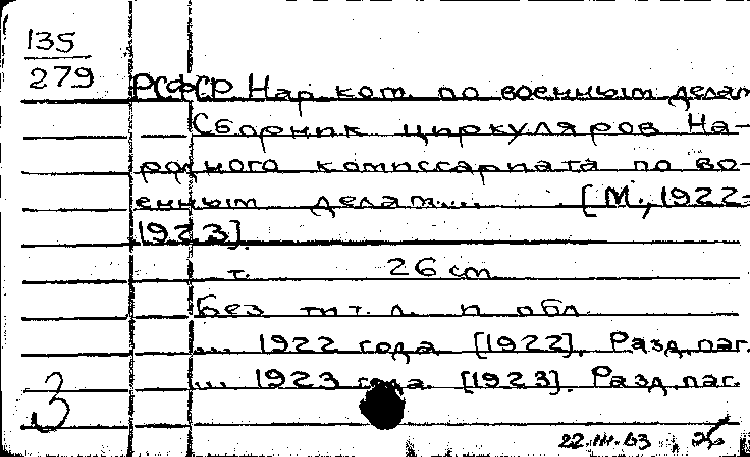 135
279
РСФСР Нар. ком. по военным делам
Сборник циркуляров На-
родного комиссариата по во-
енным делам... [М., 1922-
1923].
т. 26 см
Без тит. л. и обл.
... 1922 года [1922]. Разд. паг.
... 1923 года. [1923]. Разд. паг.
3
22.III.63